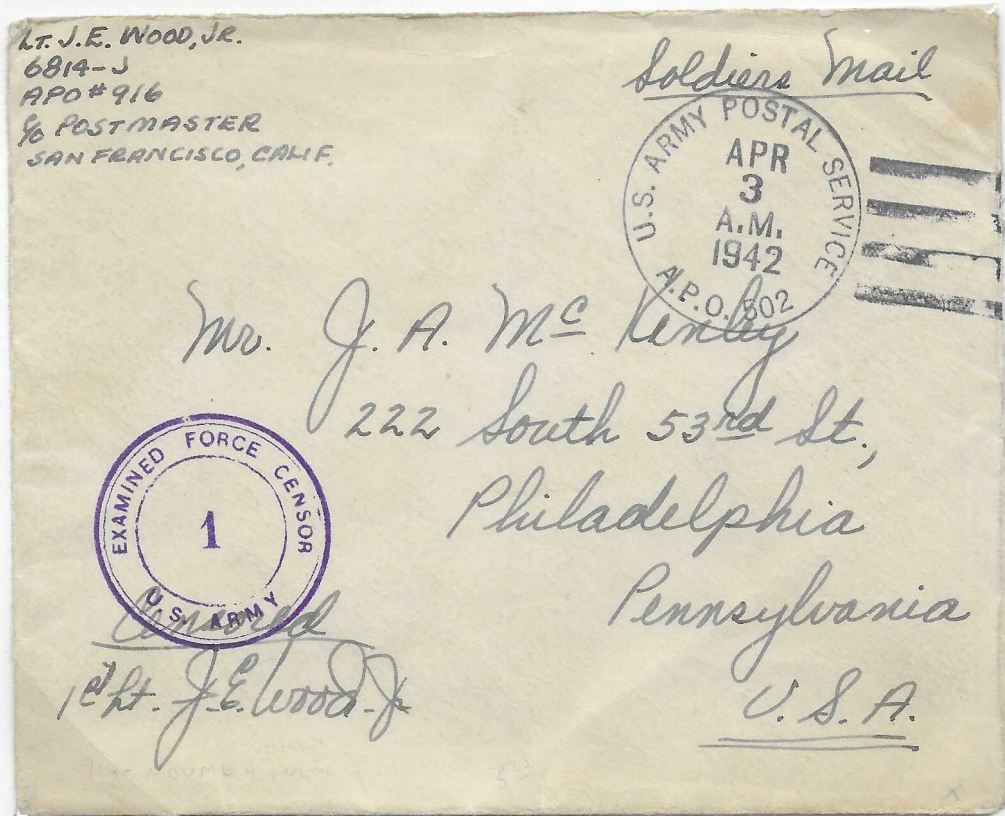 LT. J. E. WOOD, JR.
6814-J
APO # 916
c/o POSTMASTER
SAN FRANCISCO, CALIF.
Soldiers Mail
U.S. ARMY POSTAL SERVICE
APR
3
A.M.
1942
A.P.O. 502
Mr. J. A. Mc Kinley
222 South 53rd St.,
Philadelphia
Pennsylvania
U. S. A.
EXAMINED FORCE CENSOR
1
U.S. ARMY
Censored
1st Lt. J. E. Wood Jr